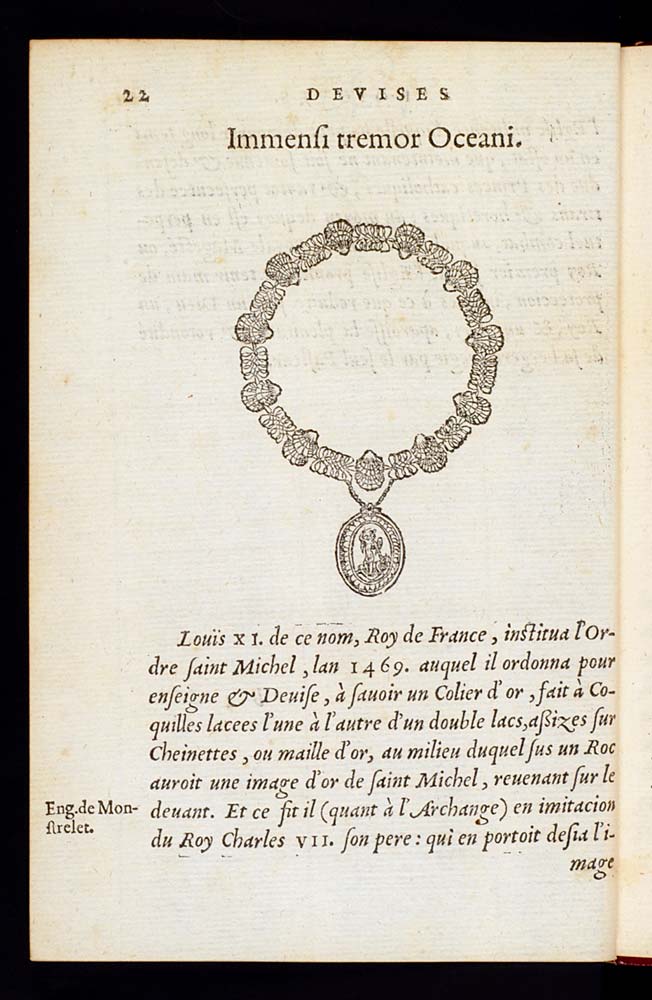 22
DEVISES
Immenſi tremor Oceani.
Louïs XI. de ce nom, Roy de France, inſtitua l'Or-
dre ſaint Michel, lan 1469. auquel il ordonna pour
enſeigne & Deuiſe, à ſauoir un Colier d'or, fait à Co-
quilles lacees l'une à l'autre d'un double lacs, aßizes ſur
Cheinettes, ou maille d'or, au milieu duquel ſus un Roc
auroit une image d'or de ſaint Michel, reuenant ſur le
Eng. de Mon-
ſtrelet.
deuant. Et ce fit il (quant à l'Archange) en imitacion
du Roy Charles VII. ſon pere: qui en portoit deſia l'i-
mage